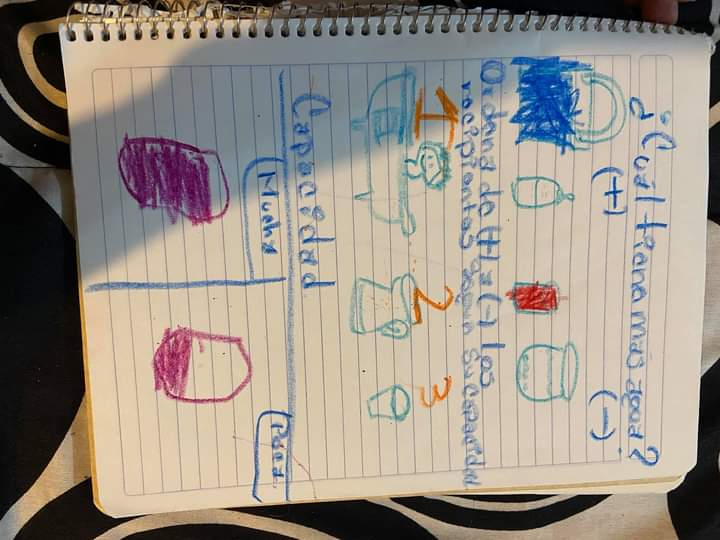 ¿Cuál tiene mas agua?
(+) (-)
Ordena de (+) a (-) los
recipientes según su capacidad
1 2 3
Capacidad
Mucha Poca